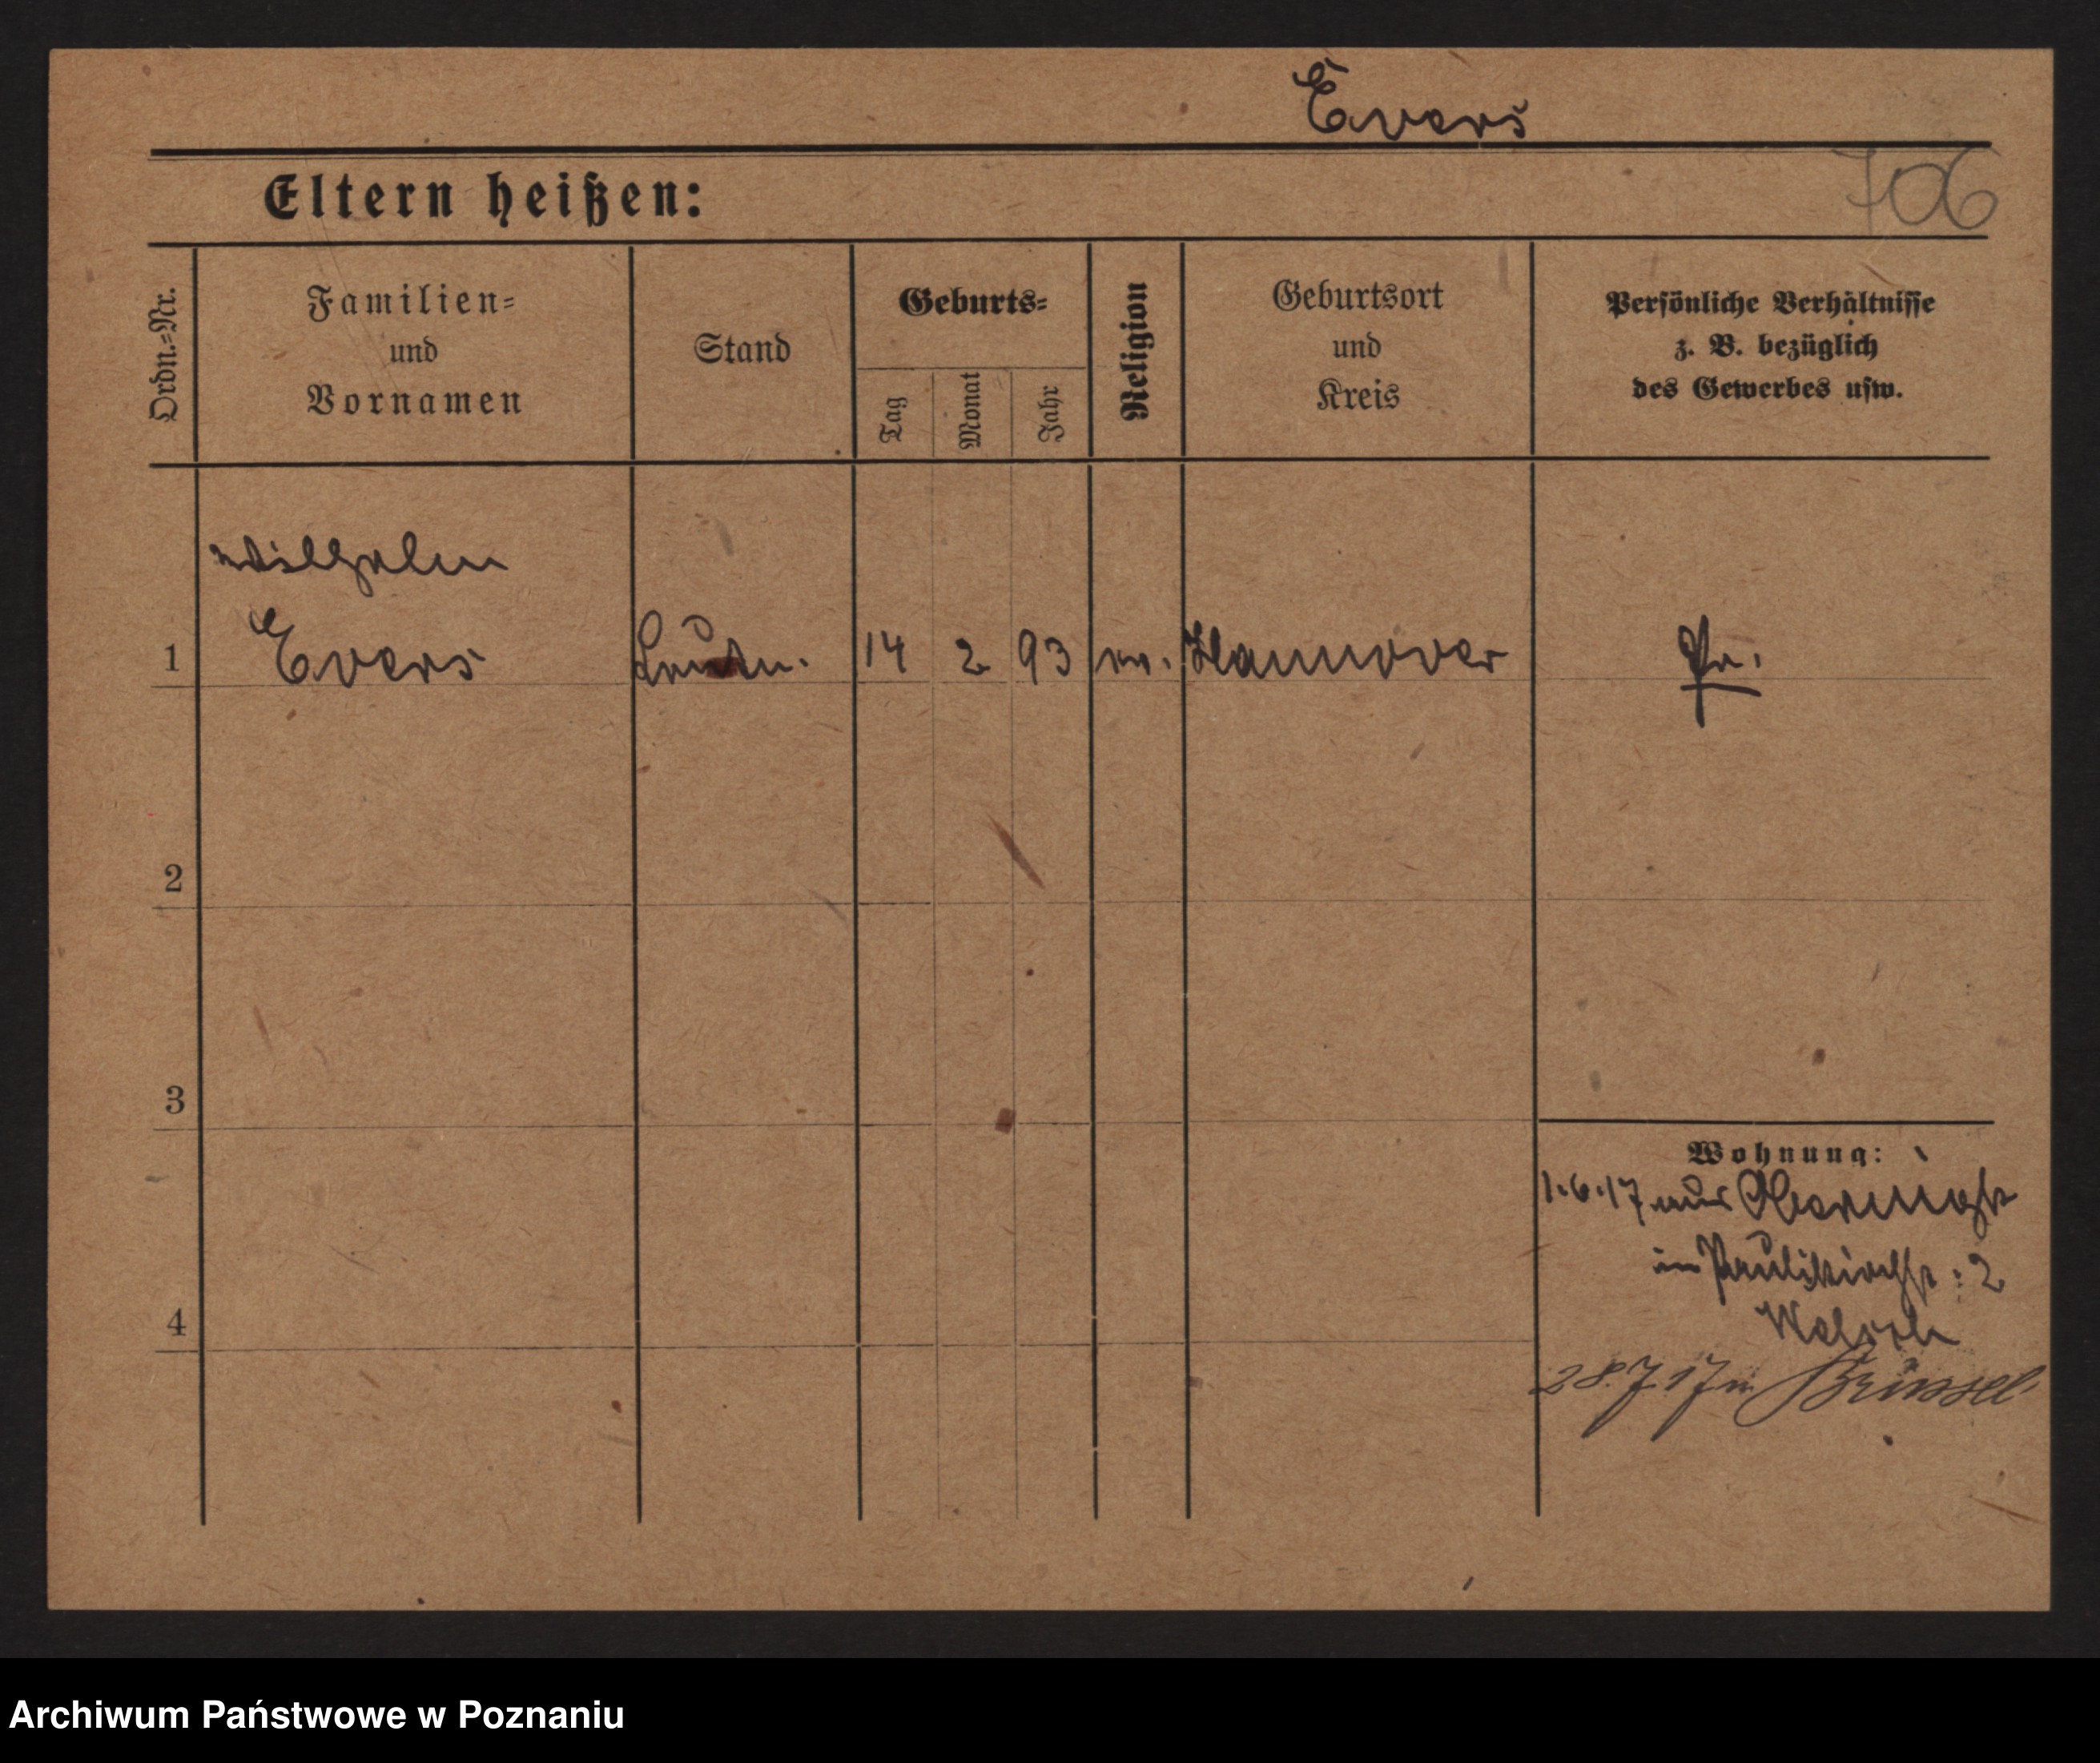 Evers
Eltern heißen:
706
Ordn.=Nr.
Familien=
und
Vornamen
Stand
Geburts=
Tag
Monat
Jahr
Religion
Geburtsort
und
Kreis
Persönliche Verhältnisse
z. B. bezüglich
des Gewerbes usw.
Wilhelm
1 Evers 14 2 93 Hannover Pr.
2
3
4
Wohnung:
1.6.17 aus
in Paulikirchstr. 2
28.7.17 n Brüssel
Archiwum Państwowe w Poznaniu